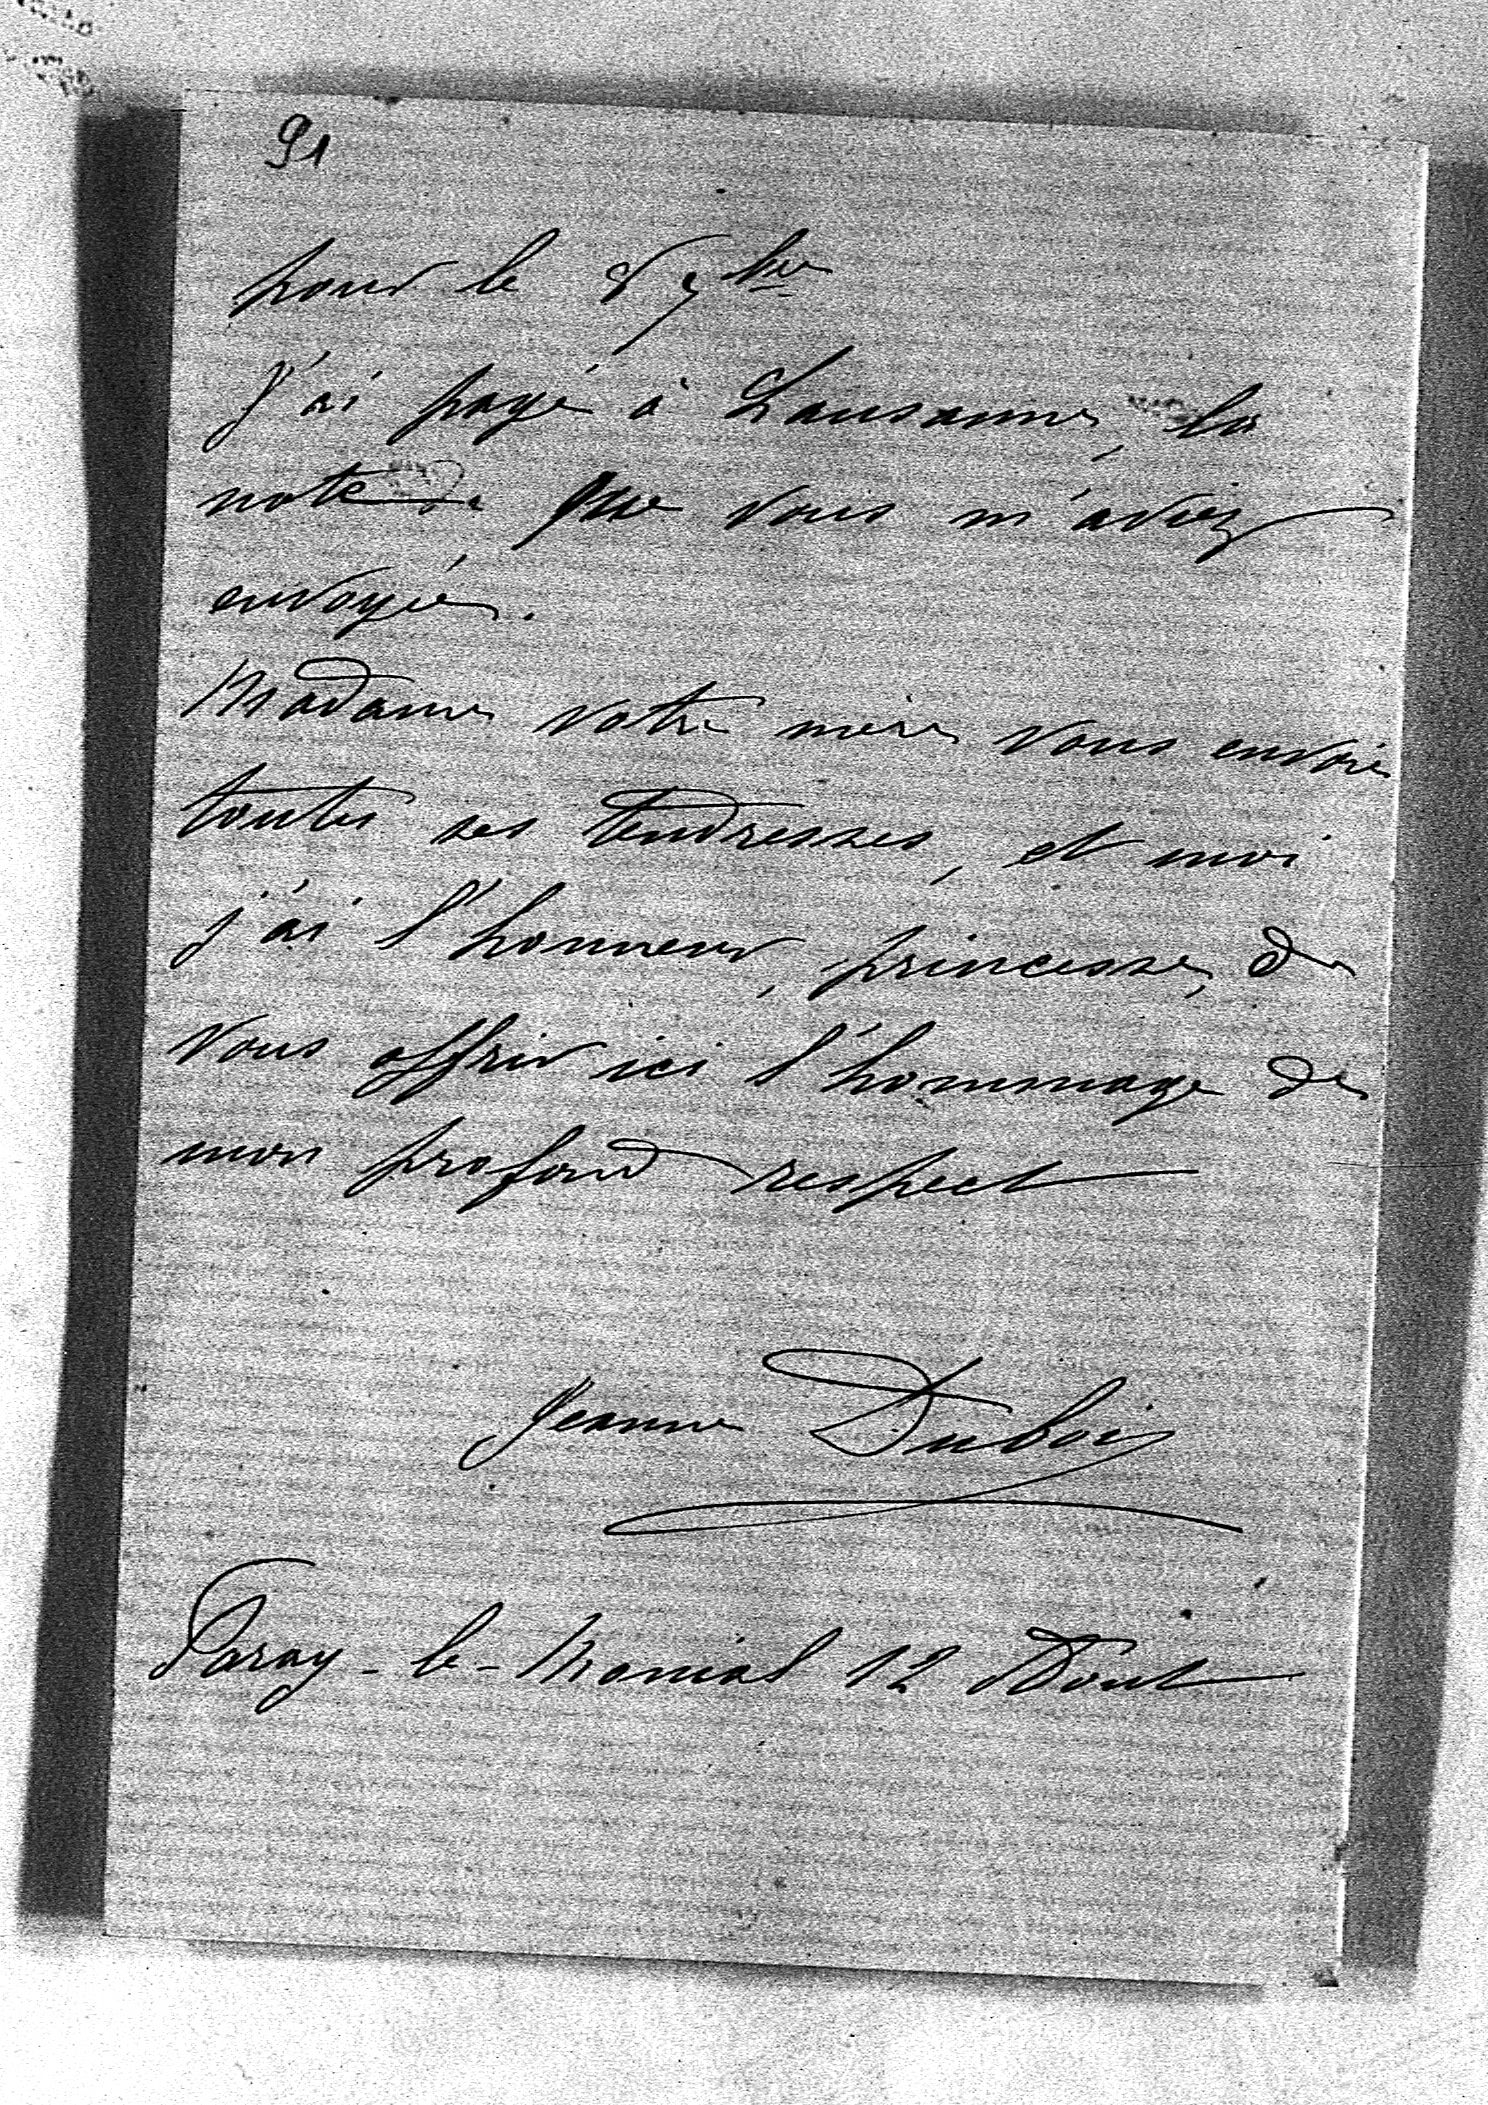 91
pour le 8 9bre
J'ai payé à Lausanne, la
note que vous m'aviez
envoyée.
Madame votre mère vous envoie
toutes ses tendresses, et moi
j'ai l'honneur, princesse, de
vous offrir ici l'hommage de
mon profond respect
Jeanne Dubois
Paray-le-Monial 12 Aout